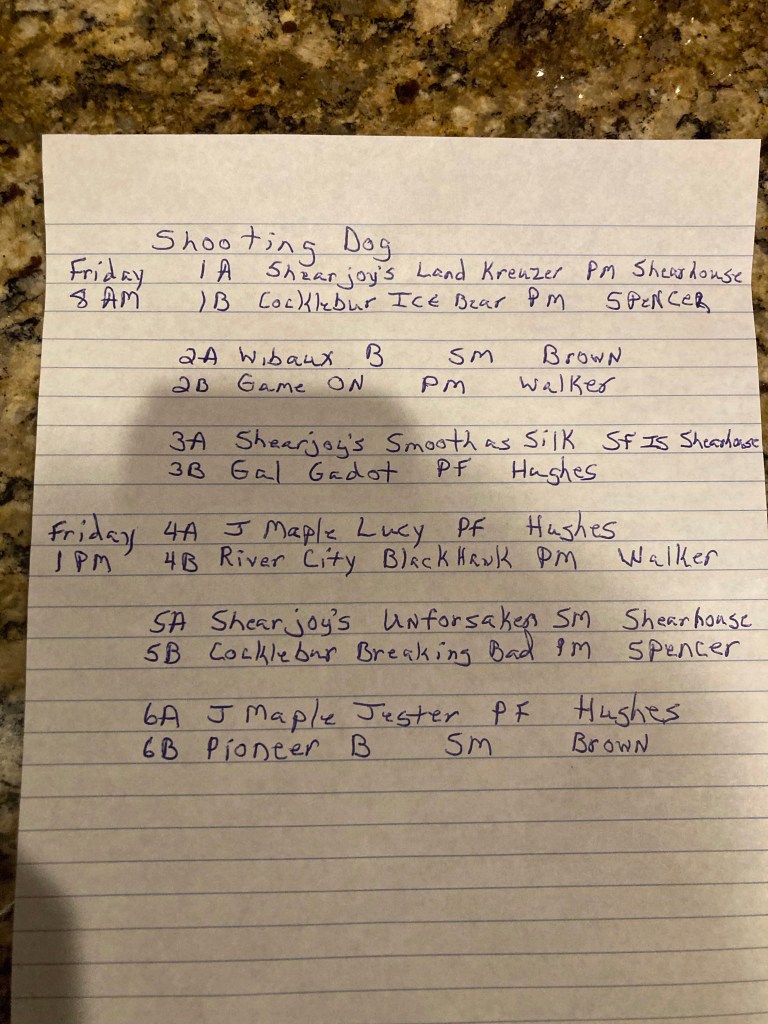 Shooting Dog
Friday 1A Shearjoy's Land Kreuzer PM Shearhouse
8 AM 1B Cocklebur ICE Bear PM SPENCER
2A Wibaux B SM BROWN
2B Game ON PM Walker
3A Shearjoy's Smooth as Silk SF IS Shearhouse
3B Gal Gadot PF Hughes
Friday 4A J Maple Lucy PF Hughes
1 PM 4B River City BlackHawk PM Walker
5A Shearjoy's UNforsaken SM Shearhouse
5B Cocklebur Breaking Bad PM SPencer
6A J Maple Jester PF Hughes
6B Pioneer B SM BROWN